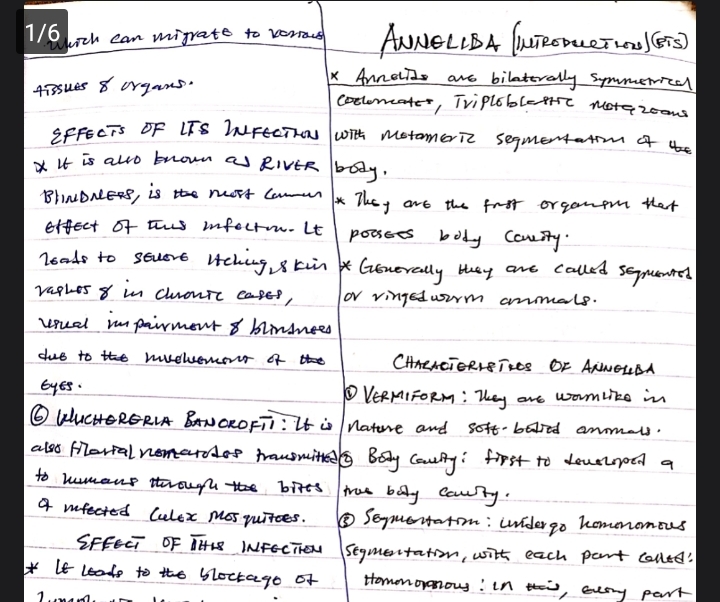 1/6
which can migrate to various
tissues & organs.
EFFECTS OF ITS INFECTION
* It is also known as RIVER
BLINDNESS, is the most common
effect of this infection. It
leads to severe itching, skin
rashes & in chronic cases,
visual impairment & blindness
due to the involvement of the
Eyes.
⑥ WUCHERERIA BANCROFTI: It is
also filarial nematodes transmitted
to humans through the bites
of infected Culex mosquitoes.
EFFECT OF THIS INFECTION
* It leads to the blockage of
ANNELIDA (INTRODUCTION)
* Annelids are bilaterally symmetrical
Coelomates, Triploblastic metazoans
with metameric segmentation of the
body.
* They are the first organism that
possess body cavity.
* Generally they are called segmented
or ringed worm animals.
CHARACTERISTICS OF ANNELIDA
① VERMIFORM: They are wormlike in
nature and soft-bodied animals.
② Body Cavity: first to developed a
true body cavity.
③ Segmentation: undergo homonomous
segmentation, with each part called:
Homonomous: in this, every part